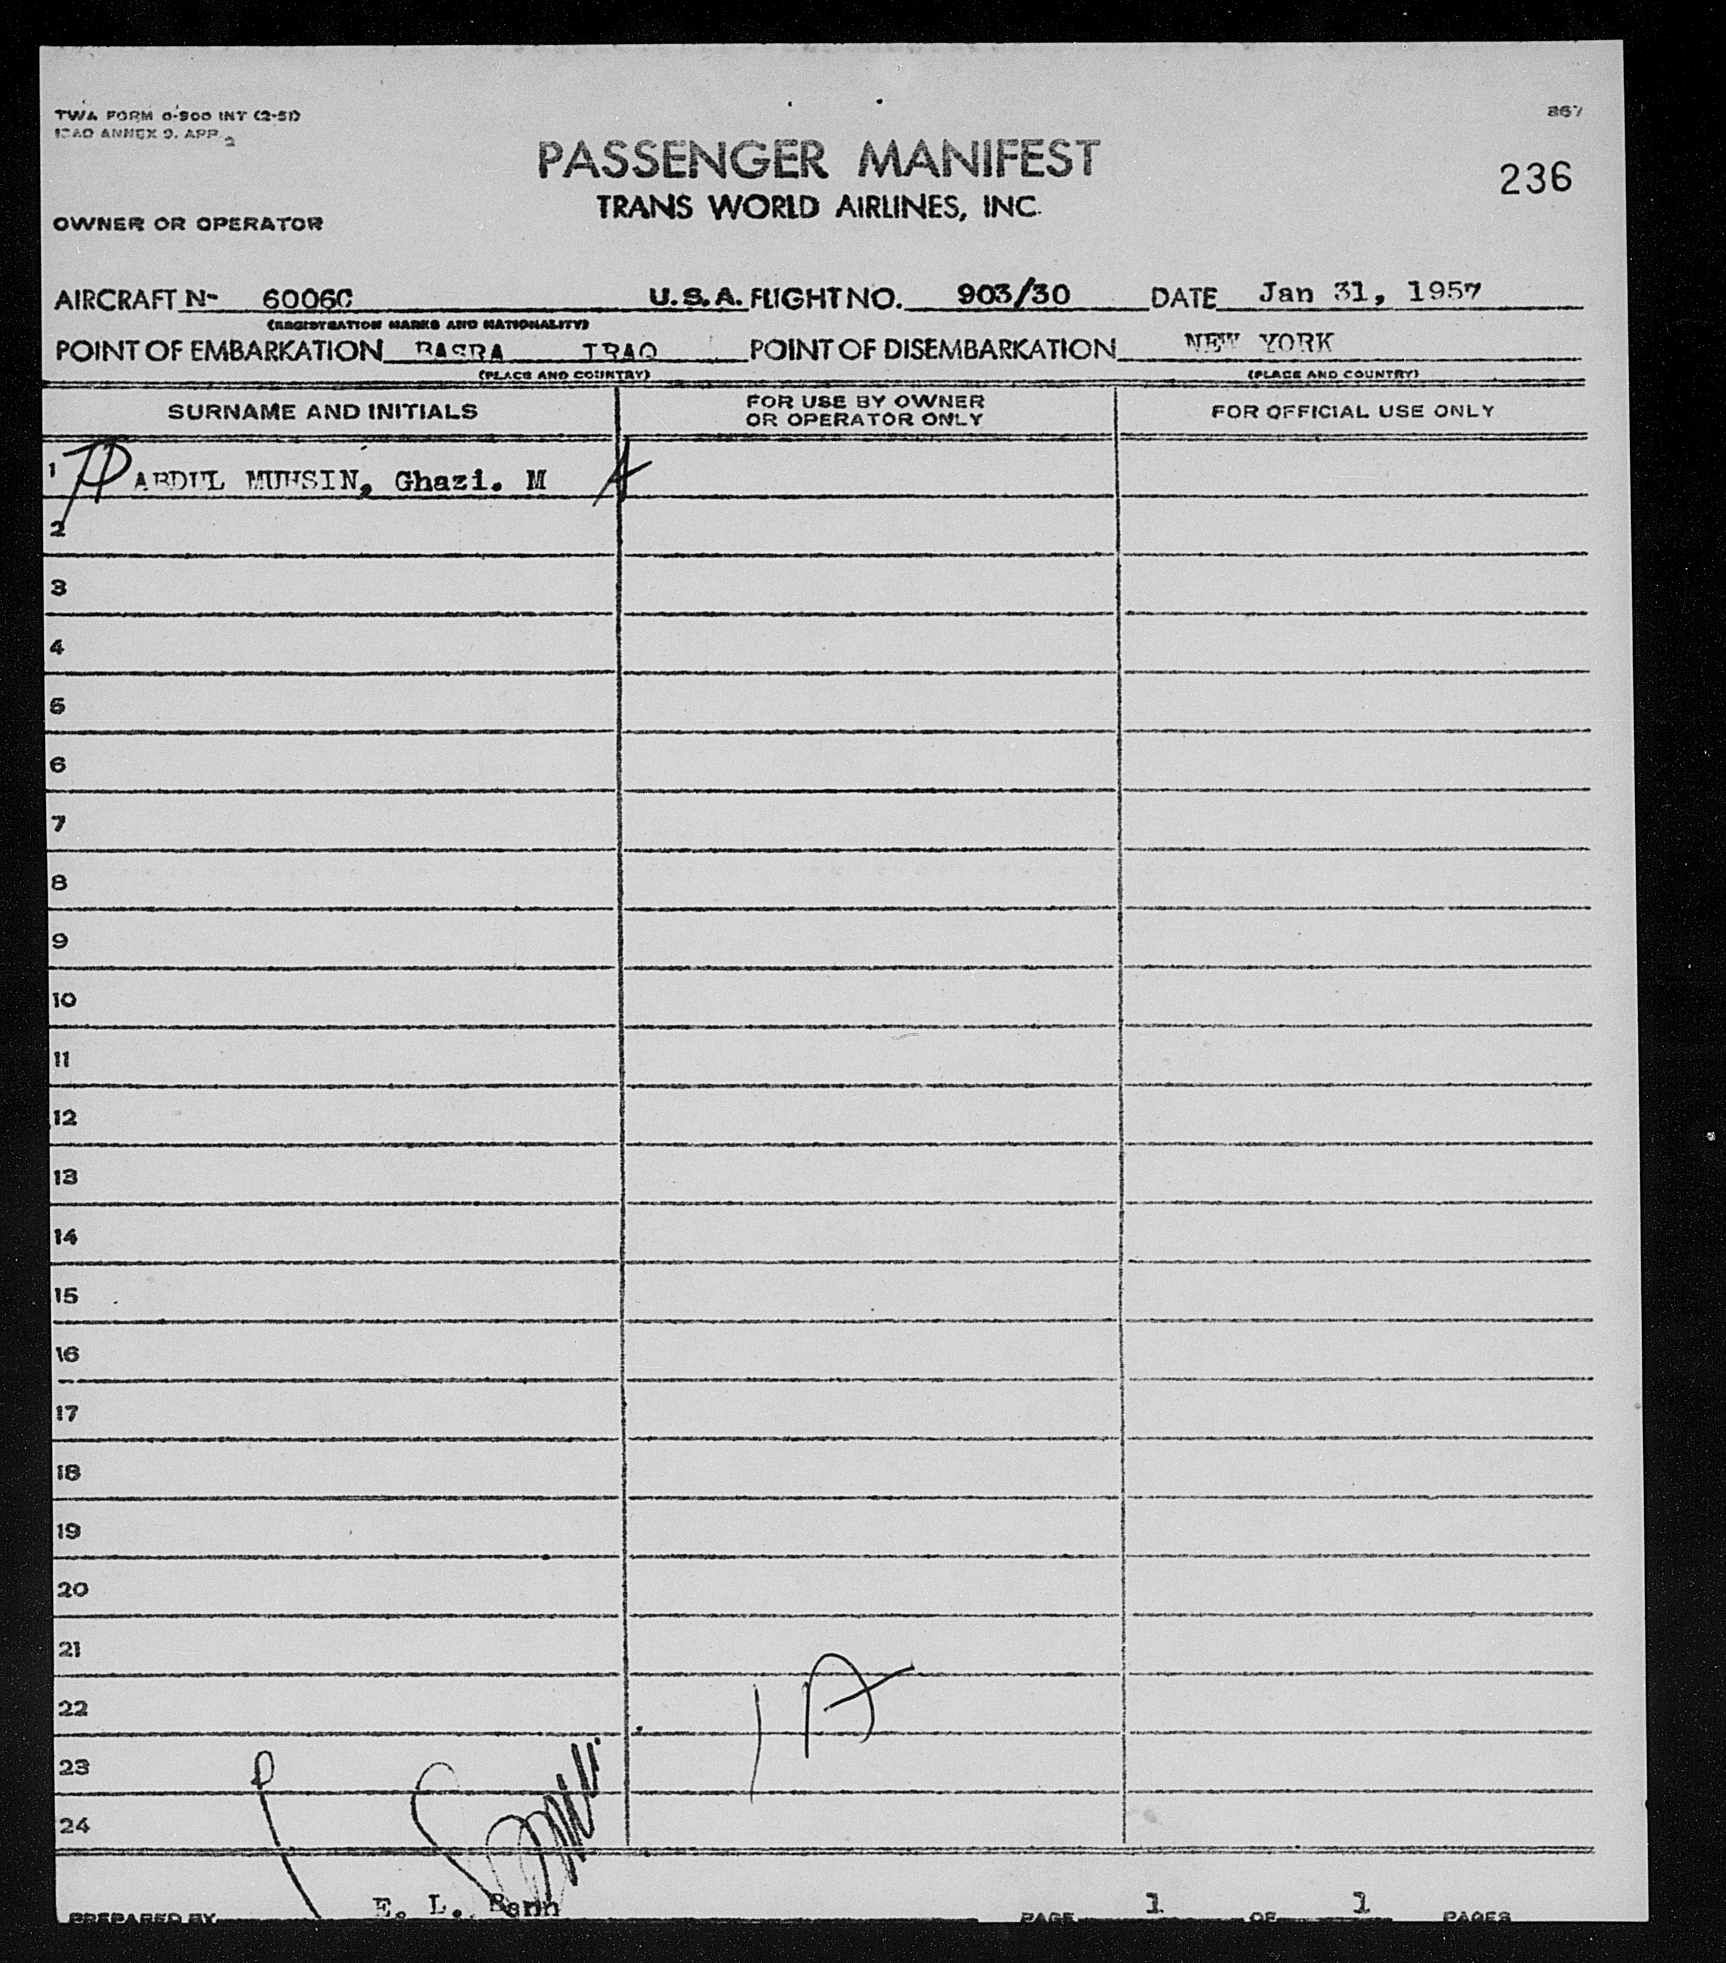 TWA FORM 0-900 INT (2-51)
ICAO ANNEX 9. APP. 2
867
PASSENGER MANIFEST
236
TRANS WORLD AIRLINES, INC.
OWNER OR OPERATOR
AIRCRAFT N- 6006C U.S.A. FLIGHT NO. 903/30 DATE Jan 31, 1957
(REGISTRATION MARKS AND NATIONALITY)
POINT OF EMBARKATION BASRA IRAQ POINT OF DISEMBARKATION NEW YORK
(PLACE AND COUNTRY) (PLACE AND COUNTRY)
SURNAME AND INITIALS FOR USE BY OWNER OR OPERATOR ONLY FOR OFFICIAL USE ONLY
1 ABDUL MUHSIN, Ghazi. M A
2
3
4
5
6
7
8
9
10
11
12
13
14
15
16
17
18
19
20
21
22 1 A
23
24
PREPARED BY E. L. PAGE 1 OF 1 PAGES